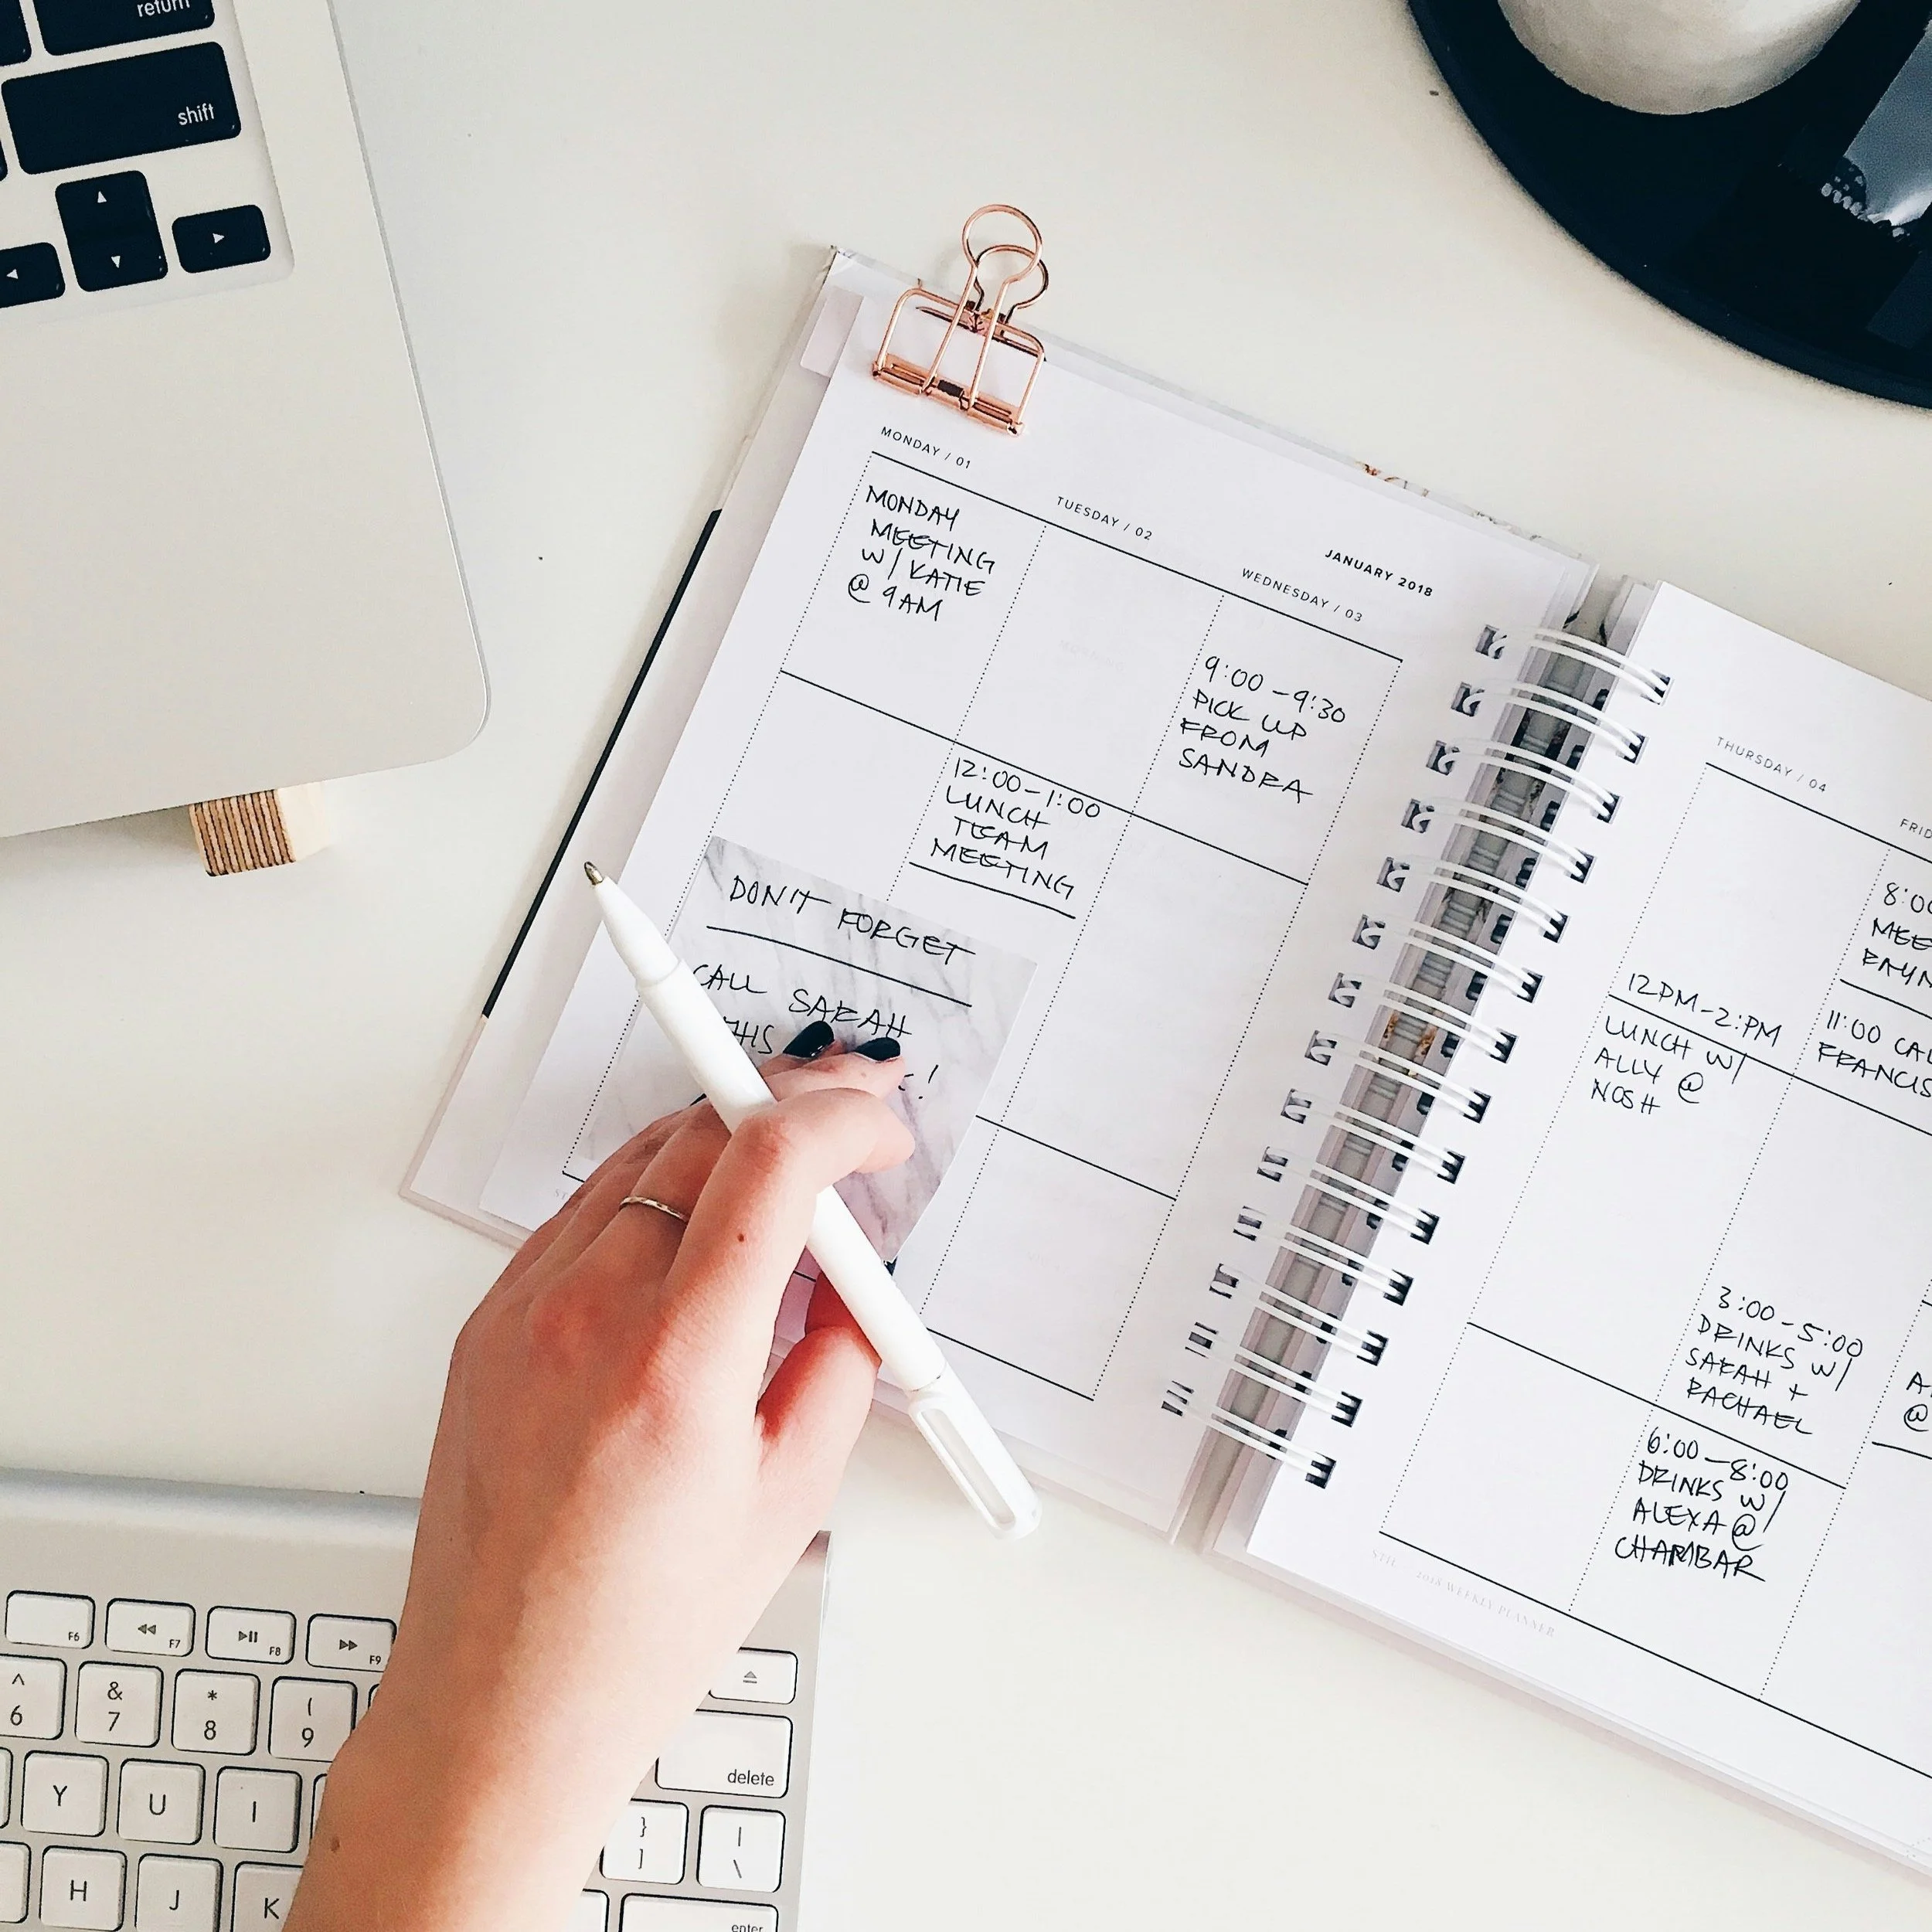 return
shift
MONDAY / 01
TUESDAY / 02
JANUARY 2018
WEDNESDAY / 03
MONDAY
MEETING
W/ KATIE
@ 9AM
9:00-9:30
PICK UP
FROM
SANDRA
12:00-1:00
LUNCH
TEAM
MEETING
DON'T FORGET
CALL SARAH
THIS
!
THURSDAY / 04
12PM-2:PM
LUNCH W/
ALLY @
NOSH
8:00
11:00
FRANCIS
3:00-5:00
DRINKS W/
SARAH +
RACHAEL
6:00-8:00
DRINKS W/
ALEXA @
CHAMBAR
@
2018 WEEKLY PLANNER
F6
F7
F8
F9
^ 6
& 7
* 8
( 9
delete
Y
U
I
}
]
|
\
H
J
K
enter